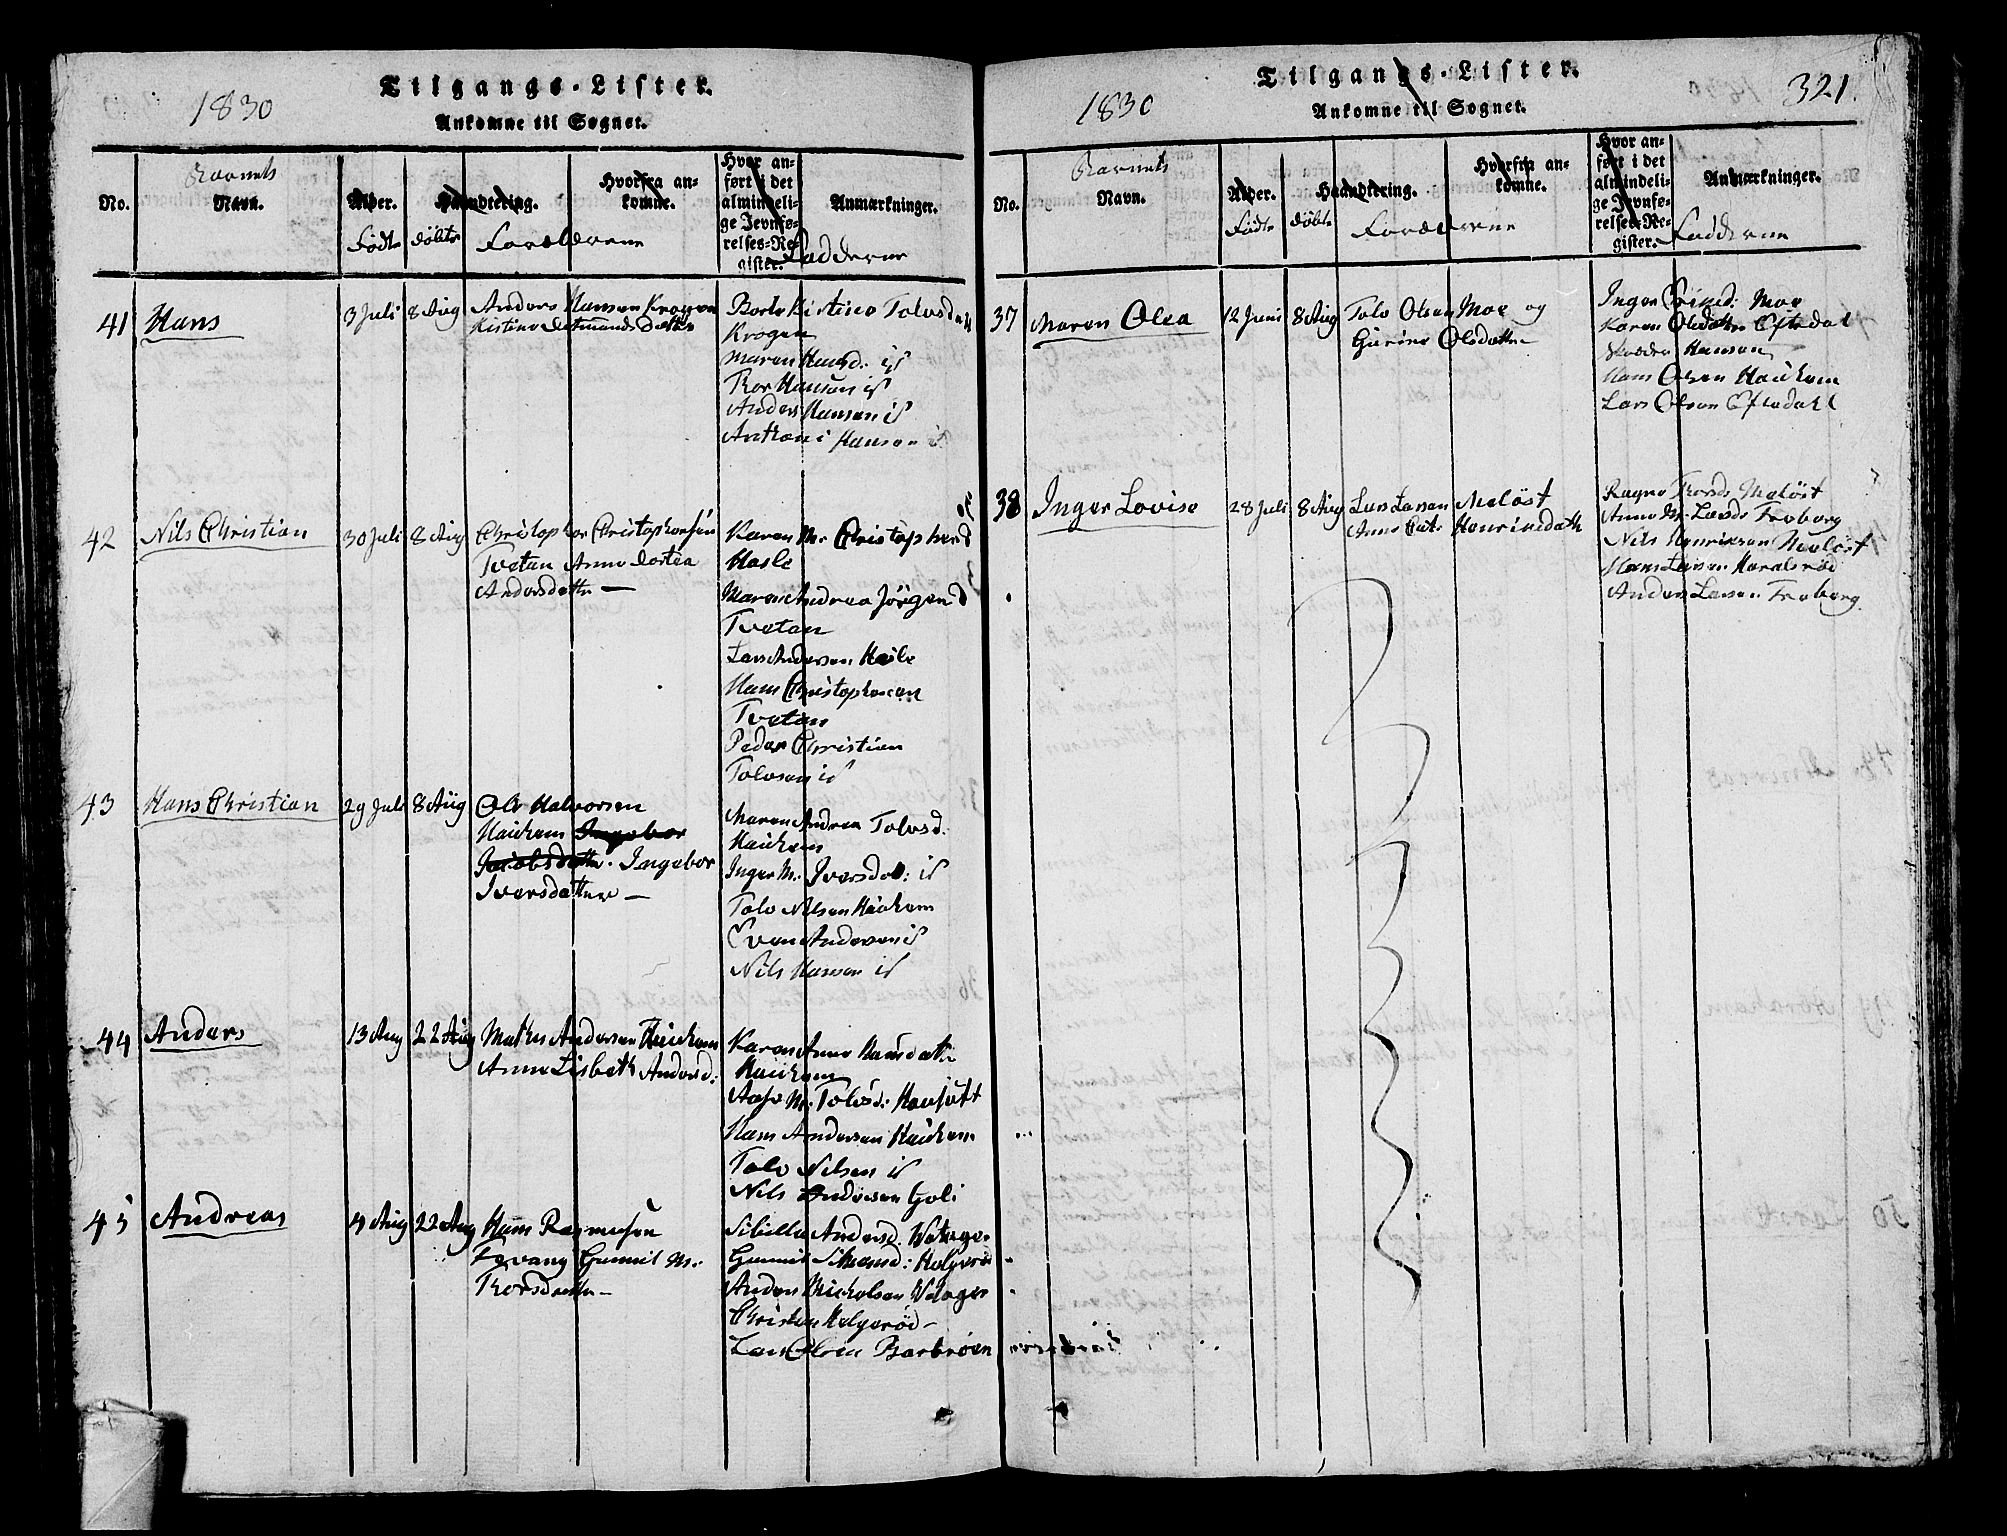 Tilgangs-Lister.
1830
Ankomne til Sognet.
No.
Barnets
Navn.
Alder.
Haandtering.
Hvorfra an-
komne.
Hvor an-
ført i det
almindeli-
ge Jevnfø-
relses-Re-
gister.
Anmærkninger.
Født døbt Forældrene Fadderne
41 Hans 3 Juli 8 Aug Anders Hansen Krogen
Kistine
Krogen
Maren Hansd: is
Thor Hansen is
Anders Hansen is
Anthoni Hansen is
42 Nils Christian 30 Juli 8 Aug Christopher Christophersen
Tvetan Anne Dortea
Andersdatter —
Karen M. Christophersd
Hasle
Maren Andrea Jörgensd
Tvetan
Lars Andersen Hasle
Hans Christophersen
Tvetan
Peder Christian
Tolvsen is
43 Hans Christian 29 Juli 8 Aug Ole Halvorsen
Haukem Ingebor
Jacobsdatter. Ingebor
Iversdatter —
Maren Andrea Tolvsd.
Haukem
Inger M. Iversdat: is
Tolv Nilsen Haukem
Even Andersen is
Nils Hansen is
44 Anders 13 Aug 22 Aug Mathis Andersen Haukem
Anne Lisbeth Andersd:
Karen Anne Hansdatt
Haukem
M. Tolvsd:
Hans Andersen Haukem
Tolv Nilsen is
Nils Andersen Goli
45 Andreas 4 Aug 22 Aug Hans Rasmusen
Fevang Gunnil M.
Thorsdatter —
Sibille Andersd.
Gunnil Simensd: Helgerød
Anders Nicholsen
Christen Helgerød —
Lars Olsen
Tilgangs-Lister.
321.
1830
Ankomne til Sognet.
No.
Barnets
Navn.
Alder.
Haandtering.
Hvorfra an-
komne.
Hvor an-
ført i det
almindeli-
ge Jevnfø-
relses-Re-
gister.
Anmærkninger.
Født døbt Forældrene Fadderne
37 Maren Olea 12 Juni 8 Aug Tolv Olsen Moe og
Gurine Olsdatter
Inger Moe
Karen Olsdatter Eftedal
Hansen
Hans Olsen Haukem
Lars Olsen Eftedahl
38 Inger Lovise 28 Juli 8 Aug Lars Larsen Meløst
Anne Cat: Henriksdatt
Ragne Thorsd: Meløst
Anne M. Larsd: Froberg
Nils Henriksen Meløst
Hans Larsen Haralsrød
Anders Larsen Froberg